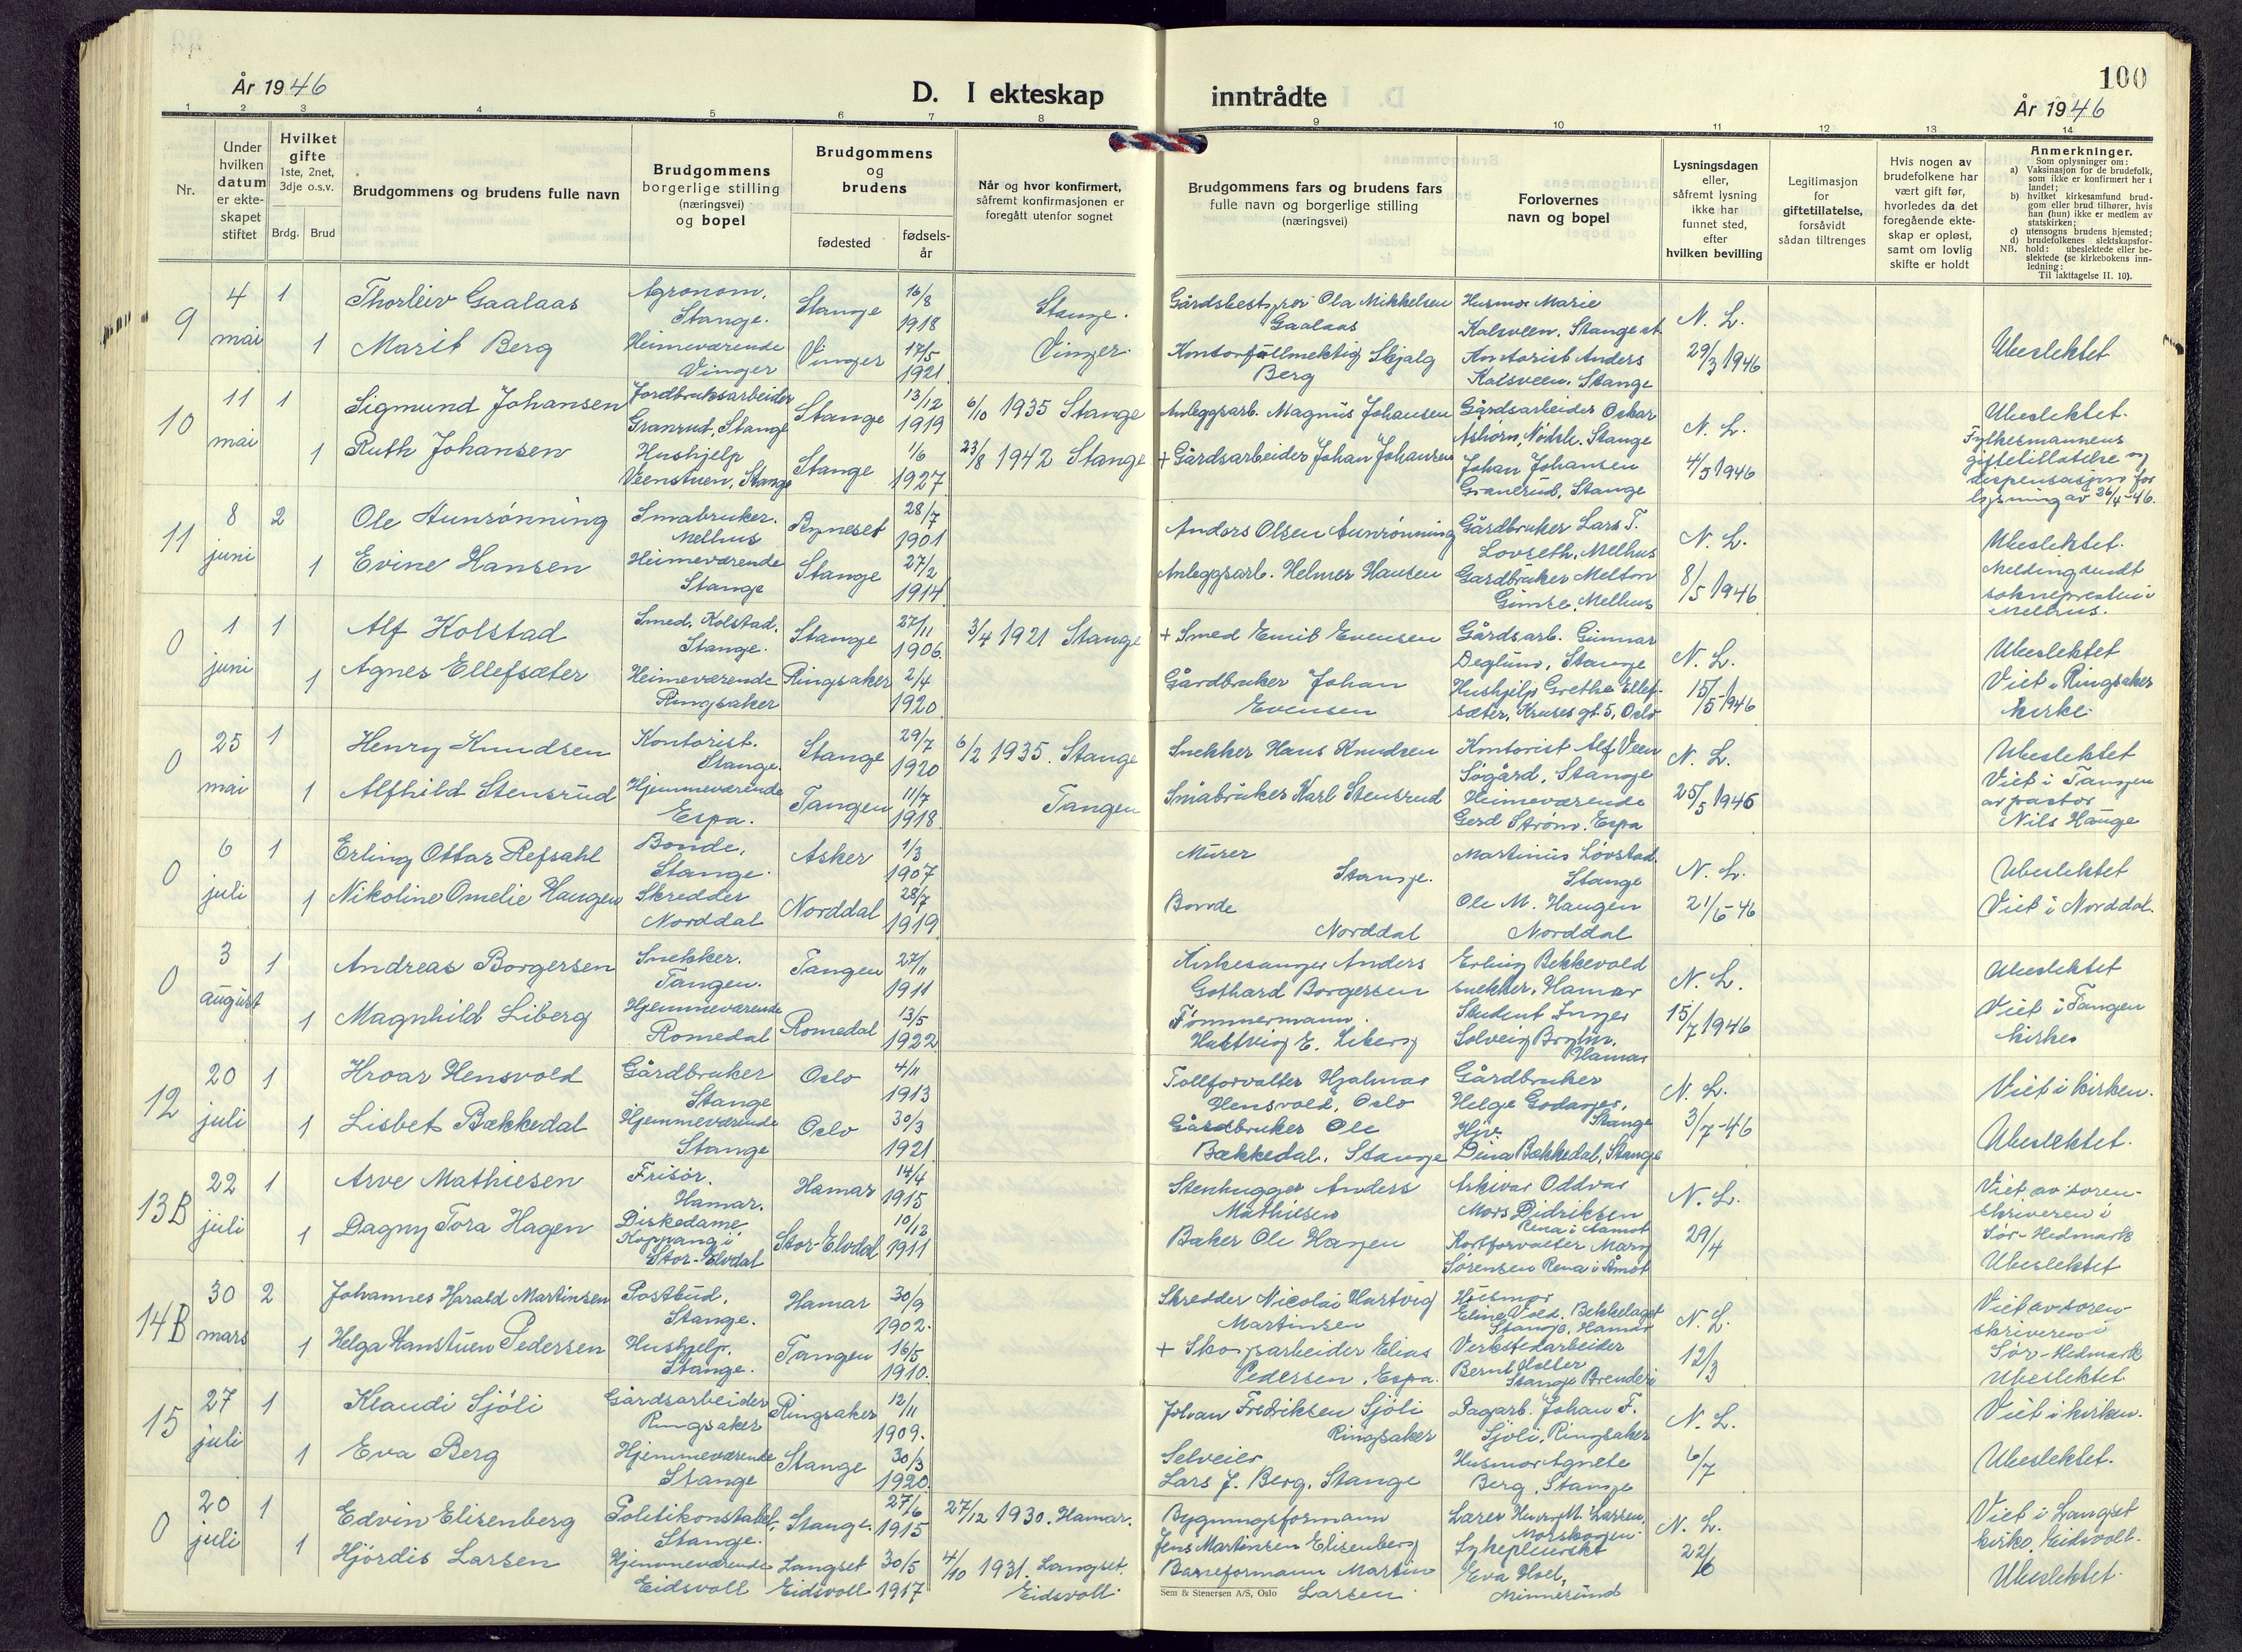 År 1946
D. I ekteskap inntrådte
100
År 1946
1 2 3 4 5 6 7 8 9 10 11 12 13 14
Nr.
Under hvilken datum er ekte-skapet stiftet
Hvilket gifte 1ste, 2net, 3dje o.s.v.
Brdg. Brud
Brudgommens og brudens fulle navn
Brudgommens borgerlige stilling (næringsvei) og bopel
Brudgommens og brudens
fødested
fødsels-år
Når og hvor konfirmert, såfremt konfirmasjonen er foregått utenfor sognet
Brudgommens fars og brudens fars fulle navn og borgerlige stilling (næringsvei)
Forlovernes navn og bopel
Lysningsdagen eller, såfremt lysning ikke har funnet sted, efter hvilken bevilling
Legitimasjon for giftetillatelse, forsåvidt sådan tiltrenges
Hvis nogen av brudefolkene har vært gift før, hvorledes da det foregående ekte-skap er opløst, samt om lovlig skifte er holdt
Anmerkninger.
Som oplysninger om:
a) Vaksinasjon for de brudefolk, som ikke er konfirmert her i landet;
b) hvilket kirkesamfund brud-gom eller brud tilhører, hvis han (hun) ikke er medlem av statskirken;
c) utensogns brudens hjemsted;
d) brudefolkenes slektskapsfor-hold: ubeslektede eller be-slektede (se kirkebokens inn-ledning:
NB. Til iakttagelse II. 10).
9 4 mai 1 Thorleiv Gaalaas Agronom, Stange. Stange 16/8 1918 Stange. Gårdsbestyrer Ola Mikkelsen Gaalaas Husmor Marie Kalsveen, Stange st. N. L.
1 Marit Berg Heimeværende Vinger Vinger 17/5 1921 Vinger. Kontorfullmektig Skjalg Berg Kontorist Anders Kalsveen, Stange 29/3 1946 Ubeslektet
10 11 mai 1 Sigmund Johansen Jordbruksarbeider Granrud, Stange Stange 13/12 1919 6/10 1935 Stange Anleggsarb. Magnus Johansen Gårdsarbeider Oskar Asbørn, Stange N. L. Ubeslektet.
1 Ruth Johansen Hushjelp Veenstuen, Stange Stange 1/6 1927 23/8 1942 Stange + Gårdsarbeider Johan Johansen Johan Johansen Granerud, Stange 4/5 1946 Fylkesmannens giftetillatelse og dispensasjon for lysning av 26/4-46.
11 8 juni 2 Ole Aunrønning Småbruker. Melhus Byneset 28/7 1901 Anders Olsen Aunrønning Gårdbruker Lars T. Lovseth, Melhus N. L. Ubeslektet.
1 Evine Hansen Heimeværende Stange Stange 27/2 1914 Anleggsarb. Helmer Hansen Gardbruker Melton Gimse, Melhus 8/5 1946 Melding sendt soknepresten i Melhus.
0 1 juni 1 Alf Kolstad Smed, Kolstad, Stange. Stange 27/11 1906. 3/4 1921 Stange + Smed Emil Evensen Gårdsarb. Gunnar Deglum, Stange N. L. Ubeslektet
1 Agnes Ellefsæter Heimeværende Ringsaker Ringsaker 2/4 1920 Gårdbruker Johan Evensen Hushjelp Grethe Ellef-sæter, Kruses gt. 5, Oslo 15/5 1946 Viet i Ringsaker kirke
0 25 mai 1 Henry Knudsen Kontorist. Stange. Stange 29/7 1920 6/2 1935. Stange Snekker Hans Knudsen Kontorist Alf Veen Søgård, Stange N. L. Ubeslektet
1 Alfhild Stensrud Hjemmeværende Espa. Tangen 11/7 1918 Tangen Småbruker Karl Stensrud Heimeværende Gerd Strøm, Espa 25/5 1946 Viet i Tangen av pastor Nils Hauge
0 6 juli 1 Erling Ottar Refsahl Bonde, Stange. Asker 1/3 1907 Murer Stange. Martinus Løvstad. Stange N. L. Ubeslektet
1 Nikoline Omelie Haugen Skredder Norddal Norddal 28/7 1919 Bonde Norddal Ole M. Haugen Norddal 21/6-46 Viet i Norddal.
0 3 august 1 Andreas Borgersen Snekker. Tangen. Tangen 27/11 1911 Kirkesanger Anders Gothard Borgersen Erling Bekkevold snekker, Hamar N. L. Ubeslektet
1 Magnhild Liberg Hjemmeværende Romedal Romedal 13/5 1922 Tømmermann. Hartvig E. Liberg Student Inger Solveig Hamar 15/7 1946 Viet i Tangen kirke
12 20 juli 1 Hroar Hensvold Gårdbruker Stange Oslo 4/11 1913 Tollforvalter Hjalmar Hensvold, Oslo Gårdbruker Helge Godager, Stange N. L. Viet i kirken.
1 Lisbet Bækkedal Hjemmeværende Stange Oslo 30/3 1921 Gårdbruker Ole Bækkedal, Stange Hjv. Dina Bækkedal, Stange 3/7-46 Ubeslektet.
13B 22 juli 1 Arve Mathiesen Frisør. Hamar. Hamar 14/4 1915 Stenhugger Anders Mathiesen Arkivar Oddvar Mors Didriksen Rena i Aamot N. L. Viet av soren-skriveren i Sør-Hedmark
1 Dagny Tora Hagen Diskedame Koppang i Stor-Elvdal Stor-Elvdal 10/12 1911 Baker Ole Hagen Kortforvalter Mary Sørensen Rena i Åmot 29/4 Ubeslektet
14B 30 mars 2 Johannes Harald Martinsen Postbud, Stange. Hamar 30/9 1902. Skredder Nicolai Hartvig Martinsen Husmor Eline Vold, Bekkelaget Stange, Hamar N. L. Viet av soren-skriveren i Sør-Hedmark
1 Helga Hanstuen Pedersen Hushjelp, Stange. Tangen 16/5 1910. + Skogsarbeider Elias Pedersen, Espa. Verkstedarbeider Bernt Holter Stange Brenderi 12/3 Ubeslektet
15 27 juli 1 Klaudi Sjøli Gårdsarbeider Ringsaker Ringsaker 12/11 1909. Johan Fredriksen Sjøli Ringsaker Dagarb. Johan F. Sjøli, Ringsaker N. L. Viet i kirken.
1 Eva Berg Hjemmeværende Stange Stange 30/3 1920. Selveier Lars J. Berg, Stange Husmor Agnete Berg, Stange 6/7 Ubeslektet.
0 20 juli 1 Edvin Elisenberg Politikonstabel, Stange. Stange. 27/6 1915 27/12 1930. Hamar. Bygningsformann Jens Martinsen Elisenberg Lærer Henry M. Larsen, Morskogen. N. L. Viet i Langset kirke, Eidsvoll.
1 Hjørdis Larsen Hjemmeværende Eidsvoll Langset Eidsvoll 30/5 1917 4/10 1931. Langset, Eidsvoll. Baneformann Martin Larsen. Sykepleierske Eva Hoel, Minnesund 22/6 Ubeslektet.
Sem & Stenersen A/S, Oslo